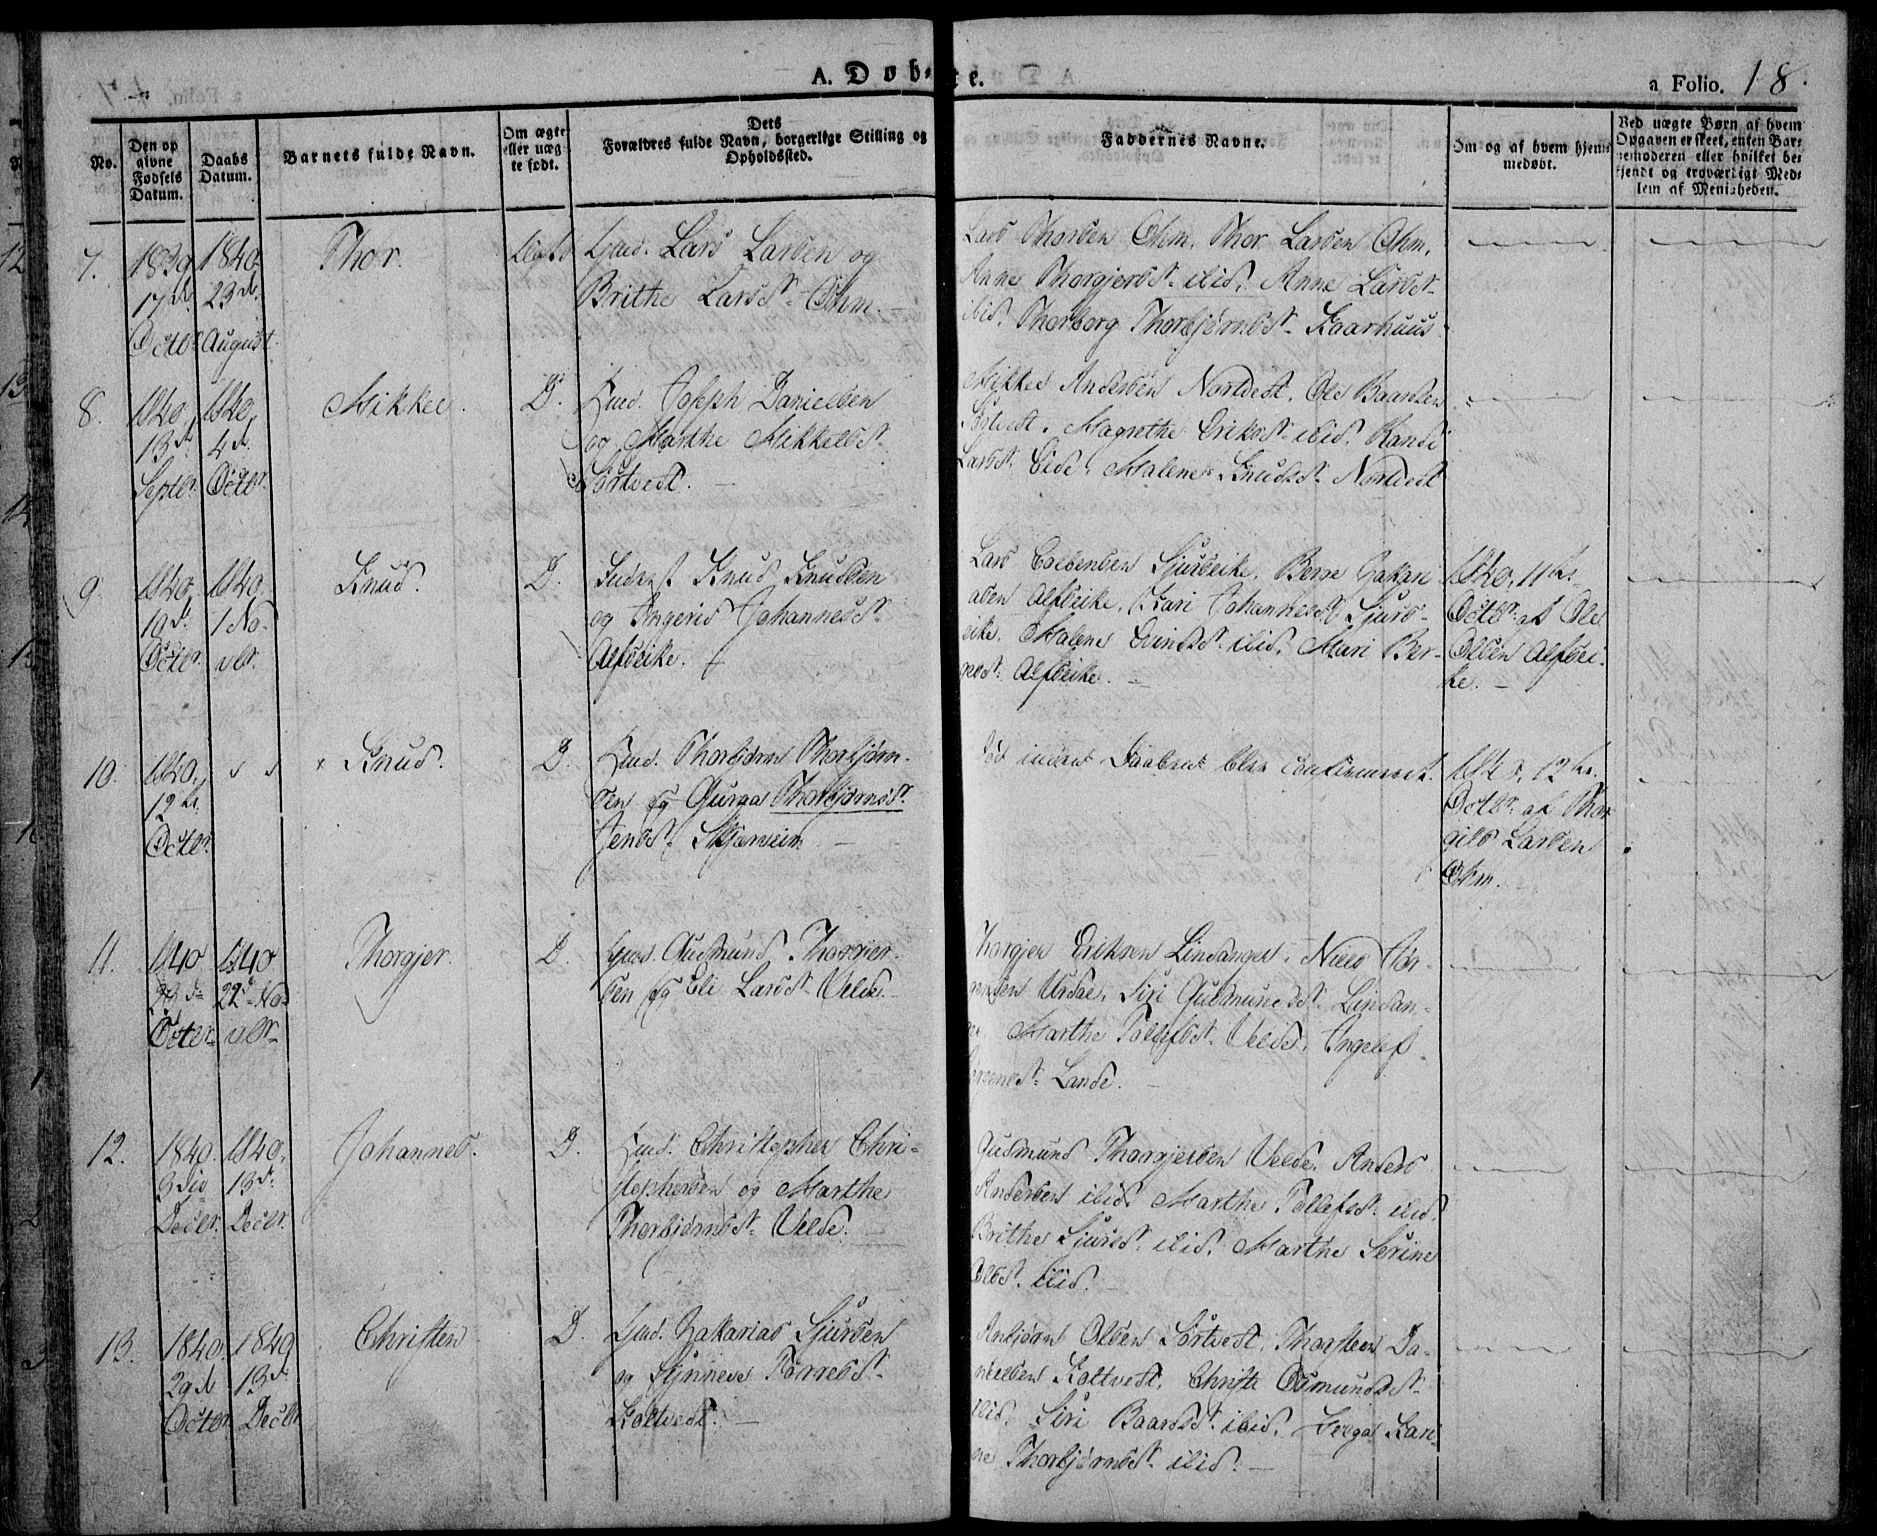 A. Døb-
te.
a Folio. 18.
No.
Den op
givne
Fødsels
Datum.
Daabs
Datum.
Barnets fulde Navn.
Om ægte
eller uæg-
te født.
Dets
Forældres fulde Navn, borgerlige Stilling og
Opholdssted.
Faddernes Navne.
Om og af hvem hjem-
medøbt.
Ved uægte Børn af hvem
Opgaven er skeet, enten Bar-
nemoderen eller hvilket be-
kjendt og troværdigt Med-
lem af Menigheden.
7.
1839
17d
Octbr
1840
23d.
August
Thor.
Ægte
Gmd. Lars Larsen og
Brithe Larsdt. Ohm.
Lars Thorsen Ohm, Thor Larsen Ohm,
Anne Thorgjersdt. ibid, Anne Larsdt.
ibid, Thorborg Thorbjørnsdt. Kaarhuus.
8.
1840,
13d
Septbr.
1840,
4d.
Octbr.
Mikkel.
D.
Hmd. Joseph Danielsen
og Marthe Mikkelsdt.
Sørtvedt.
Mikkel Andersen Nortvedt, Ole Baardsen
Magrethe Eriksdt. ibid. Randi
Larsdt. Eide, Malene Knudsdt. Nortvedt
9.
1840,
10d.
Octbr.
1840,
1 No-
vbr.
Knud.
D.
Inderst Knud Knudsen
og Ingerid Johannesdt.
Alfseike.
Lars Sjurseike, Berge Zakari-
asen Alfseike, Kari Johannesdt. Sjurs-
eike, Malene Eivindsdt. ibid, Mari Ber-
gesdt. Alfseike.
1840, 11te
Octbr. af Ole
Olsen Alfsei-
ke.
10.
1840,
12te
Octbr.
Knud.
D.
Hmd. Thorbjørn Thorbjørn-
sen og Guroe Thorbjørnsdt.
Jensdt. Skjærveim
Død inden Daaben blev confirmeret.
1840, 12te
Octbr. af Thor-
gils Larsen
Ohm.
11.
1840
23d
Octbr.
1840
22d No-
vbr.
Thorgjer.
D.
Gmd. Gudmund Thorgjer-
sen og Eli Larsdt. Velde.
Thorgjer Eriksen Lindanger, Niels
Urdal, Siri Gudmundsdt. Lindan-
ger, Marthe Tollefsdt. Velde, Ingelef
Lande.
12.
1840.
9die
Decbr.
1840,
13d.
Decbr.
Johannes.
D.
Hmd. Christopher Chri-
stophersen og Marthe
Thorbjørnsdt. Velde.
Gudmund Thorgjersen Velde, Anders
Andersen ibid, Marthe Tollefsdt. ibid,
Brithe Sjursdt. ibid, Marthe Serine
Olsdt. ibid.
13.
1840.
29d
Octbr.
1840
13d.
Decbr.
Christen
D.
Gmd. Zakarias Sjursen
og Synneve Tørresdt.
Koltvedt.
Anbjørn Olsen Sørtvedt, Thorsteen Da-
nielsen Koltvedt, Christi Osmundsdt.
ibid, Siri Baardsdt. ibid, Kari-
ne Thorbjørnsdt. ibid.